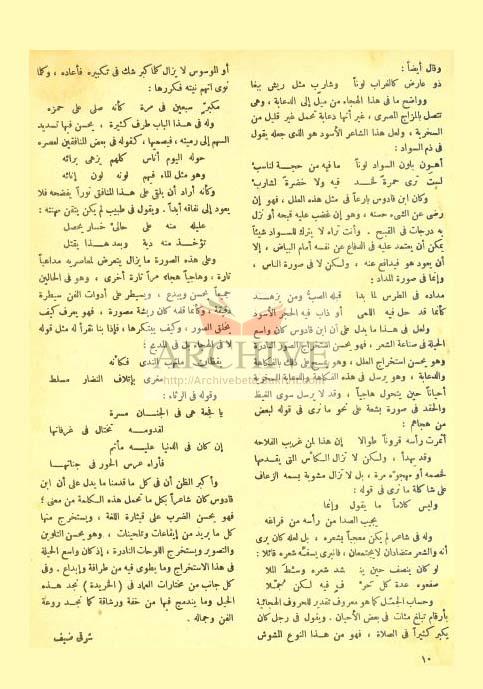 وقال أيضاً :
ذو عارض كالغراب لوناً وشارب مثل ريش ببغا
وواضح ما فى هذا الهجاء من ميل إلى الدعابة ، وهى
تتصل بالمزاج المصرى ، غير أنها دعابة تحمل غير قليل من
السخرية ، ولعل هذا الشاعر الأسود هو الذى جعله يقول
فى ذم السواد :
أهون بلون السواد لوناً ما فيه من حجة لناسب
لست ترى حمرة لخد فيه ولا خضرة لشارب
وكان ابن قادوس بارعاً فى مثل هذه العلل ، فهو إن
رضى عن الشىء حسنه ، وهو إن غضب عليه قبحه أو نزل
به درجات فى القبح . وأنت تراه لا يترك للسواد شيئاً
يمكن أن يعتمد عليه فى الدفاع عن نفسه أمام البياض ، إلا
أن يعود هو فيدافع عنه ، ولكن لا فى صورة الناس ،
وإنما فى صورة المداد :
مداده فى الطرس لما بدا قبله الصب ومن يزهد
كأنما قد حل فيه اللمى أو ذاب فيه الحجر الأسود
ولعل فى هذا ما يدل على أن ابن قادوس كان واسع
الحيلة فى صناعة الشعر ، فهو يحسن استخراج الصور النادرة
وهو يحسن استخراج العلل ، وهو يحسن بذلك بالفكاهة
والدعابة ، وهو يرسل فى هذه الفكاهة والدعابة السخرية
أحياناً حين يتحول هاجياً ، وقد يرسل سوى الغيظ
والحقد فى صورة بشعة على نحو ما نرى فى قوله لبعض
من هجاهم :
أثمرت رأسه قروناً طوالا إن هذا لمن غريب الفلاحه
وقد يهدأ ، ولكن لا تزال الكأس التى يقدمها
لخصمه أو مهجوّه مرة ، بل لا تزال مشوبة بسمه الزعاف
على شاكلة ما نرى فى قوله :
وليس كلاماً ما يقول وإنما
يجيب الصدا من رأسه من فراغه
وله فى شاعر لم يكن معجباً بشعره ، بل لعله كان يرى
أنه والشعر متضادان لا يجتمعان ، فانبرى يسفّه شعره قائلا :
لو كان ينصف حين ينشد شعره وسط الملا
صفعوه عدة كل حرف فيه لكن جملا
وحساب الجمّل كما هو معروف تقدير للحروف الهجائية
بأرقام تبلغ مئات فى بعض الأحيان . ويقول فى رجل كان
يكبر كثيراً فى الصلاة ، فهو من هذا النوع المشوش
أو الموسوس لا يزال كلما كبر شك فى تكبيره فأعاده ، وكلما
نوى اتهم نيته فكررها :
مكبر سبعين فى مرة كأنه صلى على حمزه
وله فى هذا الباب طرف كثيرة ، يحسن فيها تسديد
السهم إلى رميته ، فيصميها ، كقوله فى بعض المنافقين لعصره
حوله اليوم أناس كلهم يزهى برائه
وهو مثل الماء فيهم لونه لون إنائه
وكأنه أراد أن يلقى على هذا المنافق نوراً يفضحه فلا
يعود إلى نفاقه أبداً . ويقول فى طبيب لم يكن يتقن مهنته :
عليله منه على حالى خسار يحصل
تؤخذ منه دية وبعد هذا يقتل
وعلى هذه الصورة ما يزال يتعرض لمعاصريه مداعباً
تارة ، وهاجياً هجاء مراً تارة أخرى ، وهو فى الحالين
جميعاً يحسن ويبدع ، ويسيطر على أدوات الفن سيطرة
دقيقة ، وكأنما قلمه كان ريشة مصورة ، فهو يعرف كيف
يخلق الصور ، وكيف يبتكرها ، فإذا بنا نقرأ له مثل قوله
لا فى الهجاء بل فى المديح :
الندى فكأنه
بإتلاف النضار مسلط
وقوله فى الرثاء :
يا فجعة هى فى الجنان مسرة
لقدومه تختال فى غرفاتها
إن كان فى الدنيا عليه مأتم
فأراه عرس الحور فى جناتها
وأكبر الظن أن فى كل ما قدمنا ما يدل على أن ابن
قادوس كان شاعراً بكل ما تحمل هذه الكلمة من معنى ؛
فهو يحسن الضرب على قيثارة اللغة ، ويستخرج منها
كل ما يريد من إيقاعات وتلحينات ، وهو يحسن التلوين
والتصوير ويستخرج اللوحات النادرة ، إذ كان واسع الحيلة
فى هذا الاستخراج وما يطوى فيه من طرافة وإبداع . وفى
كل جانب من مختارات العماد فى ( الخريدة ) نجد هذه
الحيل وما يندمج فيها من خفة ورشاقة كما نجد روعة
الفن وجماله .
شوقى ضيف
١٠
ARCHIVE